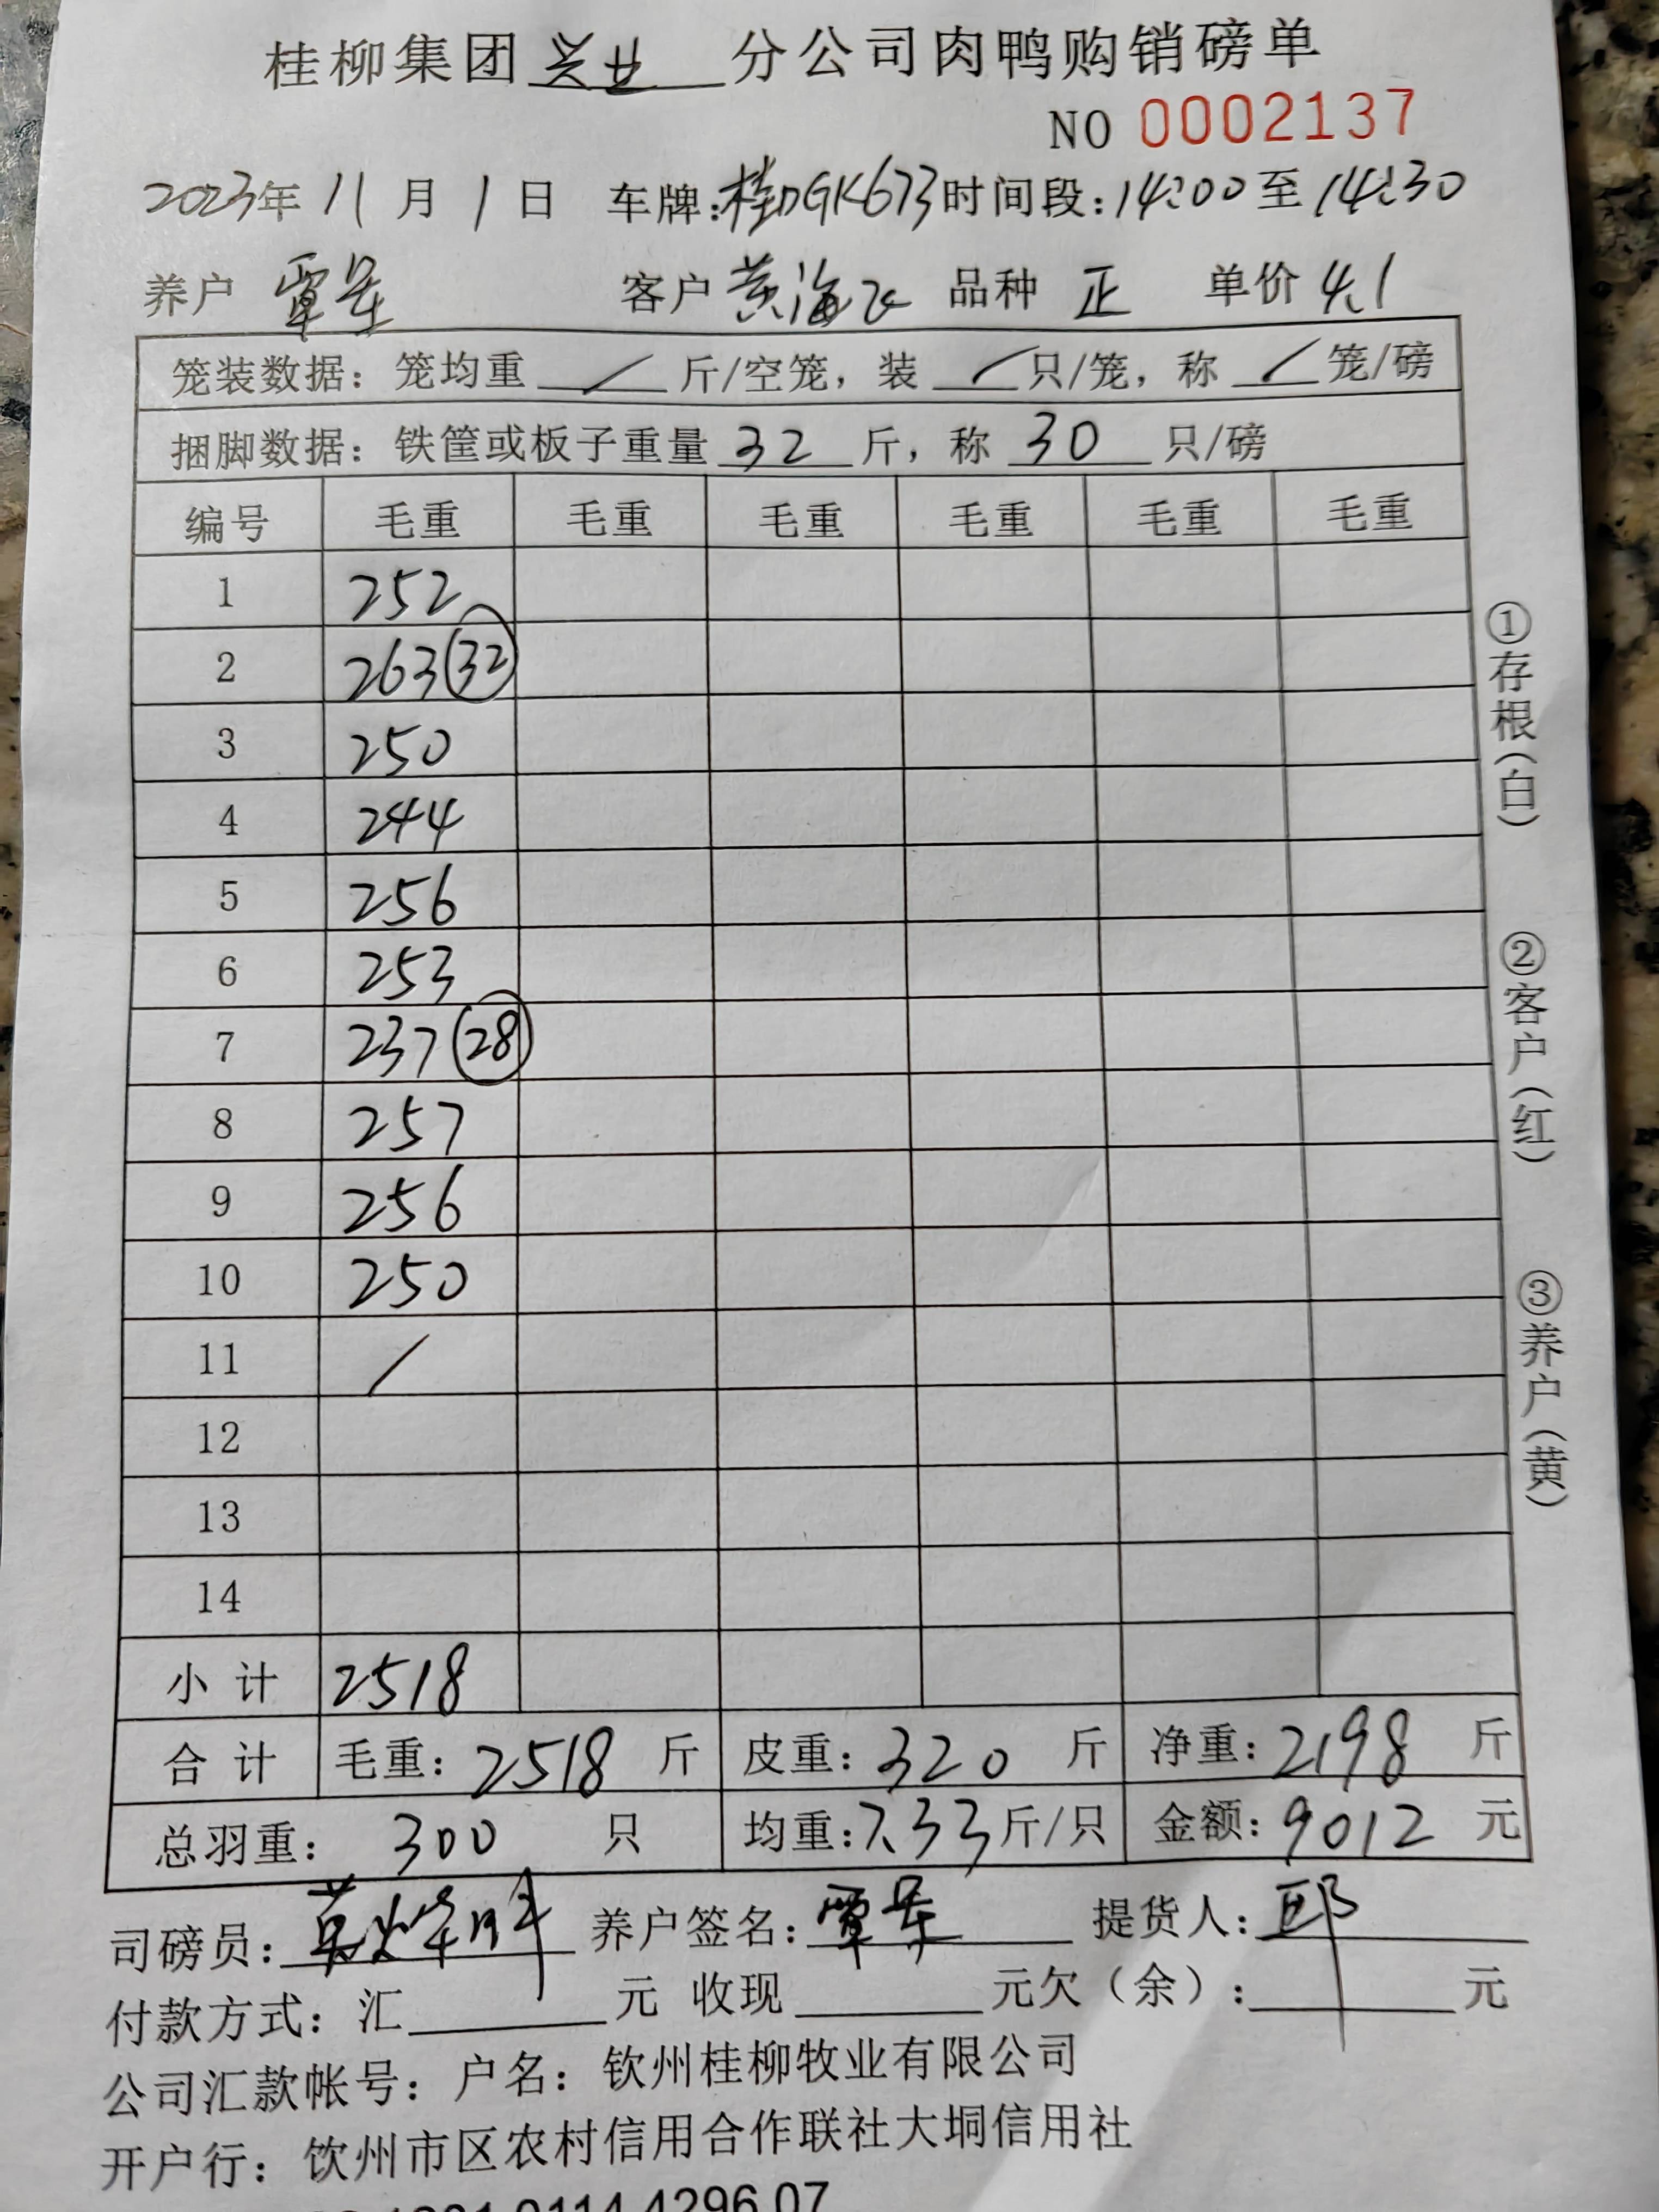 桂柳集团兴业分公司肉鸭购销磅单
NO 0002137
2023年11月1日 车牌:桂DGK673时间段:14:00至14:30
养户 覃 客户 黄海飞 品种 正 单价 4.1
笼装数据: 笼均重 / 斤/空笼, 装 / 只/笼, 称 / 笼/磅
捆脚数据: 铁筐或板子重量 32 斤, 称 30 只/磅
编号 毛重 毛重 毛重 毛重 毛重 毛重
1 252
2 263 (32)
3 250
4 244
5 256
6 253
7 237 (28)
8 257
9 256
10 250
11 /
12
13
14
小计 2518
合计 毛重: 2518 斤 皮重: 320 斤 净重: 2198 斤
总羽重: 300 只 均重: 7.33 斤/只 金额: 9012 元
司磅员: 养户签名: 覃 提货人: 邱
付款方式: 汇 元 收现 元欠(余): 元
公司汇款帐号: 户名: 钦州桂柳牧业有限公司
开户行: 钦州市区农村信用合作联社大垌信用社
①存根(白)
②客户(红)
③养户(黄)